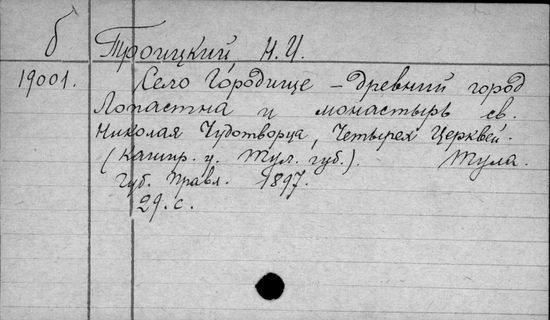 б Троицкий Н.И.
19001. Село Городище – древний город
Лопастна и монастырь св.
Николая Чудотворца, Четырех Церквей.
(Кашир. у. Тул. губ.). Тула.
Губ. Правл. 1897.
29. с.